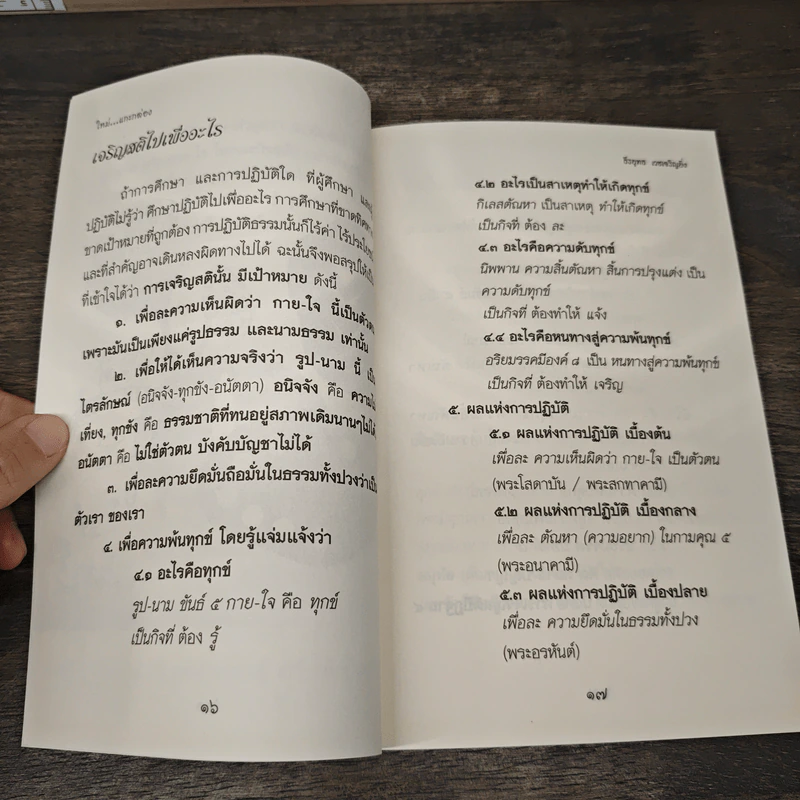 ใหม่...แกะกล่อง
เจริญสติไปเพื่ออะไร
ถ้าการศึกษา และการปฏิบัติใด ที่ผู้ศึกษา และผู้
ปฏิบัติไม่รู้ว่า ศึกษาปฏิบัติไปเพื่ออะไร การศึกษาที่ขาดทิศทาง
ขาดเป้าหมายที่ถูกต้อง การปฏิบัติธรรมนั้นก็ไร้ค่า ไร้ประโยชน์
และที่สำคัญอาจเดินหลงผิดทางไปได้ ฉะนั้นจึงพอสรุปให้เป็น
ที่เข้าใจได้ว่า การเจริญสตินั้น มีเป้าหมาย ดังนี้
๑. เพื่อละความเห็นผิดว่า กาย-ใจ นี้เป็นตัวตน
เพราะมันเป็นเพียงแค่รูปธรรม และนามธรรม เท่านั้น
๒. เพื่อให้ได้เห็นความจริงว่า รูป-นาม นี้ เป็น
ไตรลักษณ์ (อนิจจัง-ทุกขัง-อนัตตา) อนิจจัง คือ ความไม่
เที่ยง, ทุกขัง คือ ธรรมชาติที่ทนอยู่สภาพเดิมนานๆไม่ได้
อนัตตา คือ ไม่ใช่ตัวตน บังคับบัญชาไม่ได้
๓. เพื่อละความยึดมั่นถือมั่นในธรรมทั้งปวงว่าเป็น
ตัวเรา ของเรา
๔. เพื่อความพ้นทุกข์ โดยรู้แจ่มแจ้งว่า
๔.๑ อะไรคือทุกข์
รูป-นาม ขันธ์ ๕ กาย-ใจ คือ ทุกข์
เป็นกิจที่ ต้อง รู้
๑๖
ธีรยุทธ เวชเจริญยิ่ง
๔.๒ อะไรเป็นสาเหตุทำให้เกิดทุกข์
กิเลสตัณหา เป็นสาเหตุ ทำให้เกิดทุกข์
เป็นกิจที่ ต้อง ละ
๔.๓ อะไรคือความดับทุกข์
นิพพาน ความสิ้นตัณหา สิ้นการปรุงแต่ง เป็น
ความดับทุกข์
เป็นกิจที่ ต้องทำให้ แจ้ง
๔.๔ อะไรคือหนทางสู่ความพ้นทุกข์
อริยมรรคมีองค์ ๘ เป็น หนทางสู่ความพ้นทุกข์
เป็นกิจที่ ต้องทำให้ เจริญ
๕. ผลแห่งการปฏิบัติ
๕.๑ ผลแห่งการปฏิบัติ เบื้องต้น
เพื่อละ ความเห็นผิดว่า กาย-ใจ เป็นตัวตน
(พระโสดาบัน / พระสกทาคามี)
๕.๒ ผลแห่งการปฏิบัติ เบื้องกลาง
เพื่อละ ตัณหา (ความอยาก) ในกามคุณ ๕
(พระอนาคามี)
๕.๓ ผลแห่งการปฏิบัติ เบื้องปลาย
เพื่อละ ความยึดมั่นในธรรมทั้งปวง
(พระอรหันต์)
๑๗